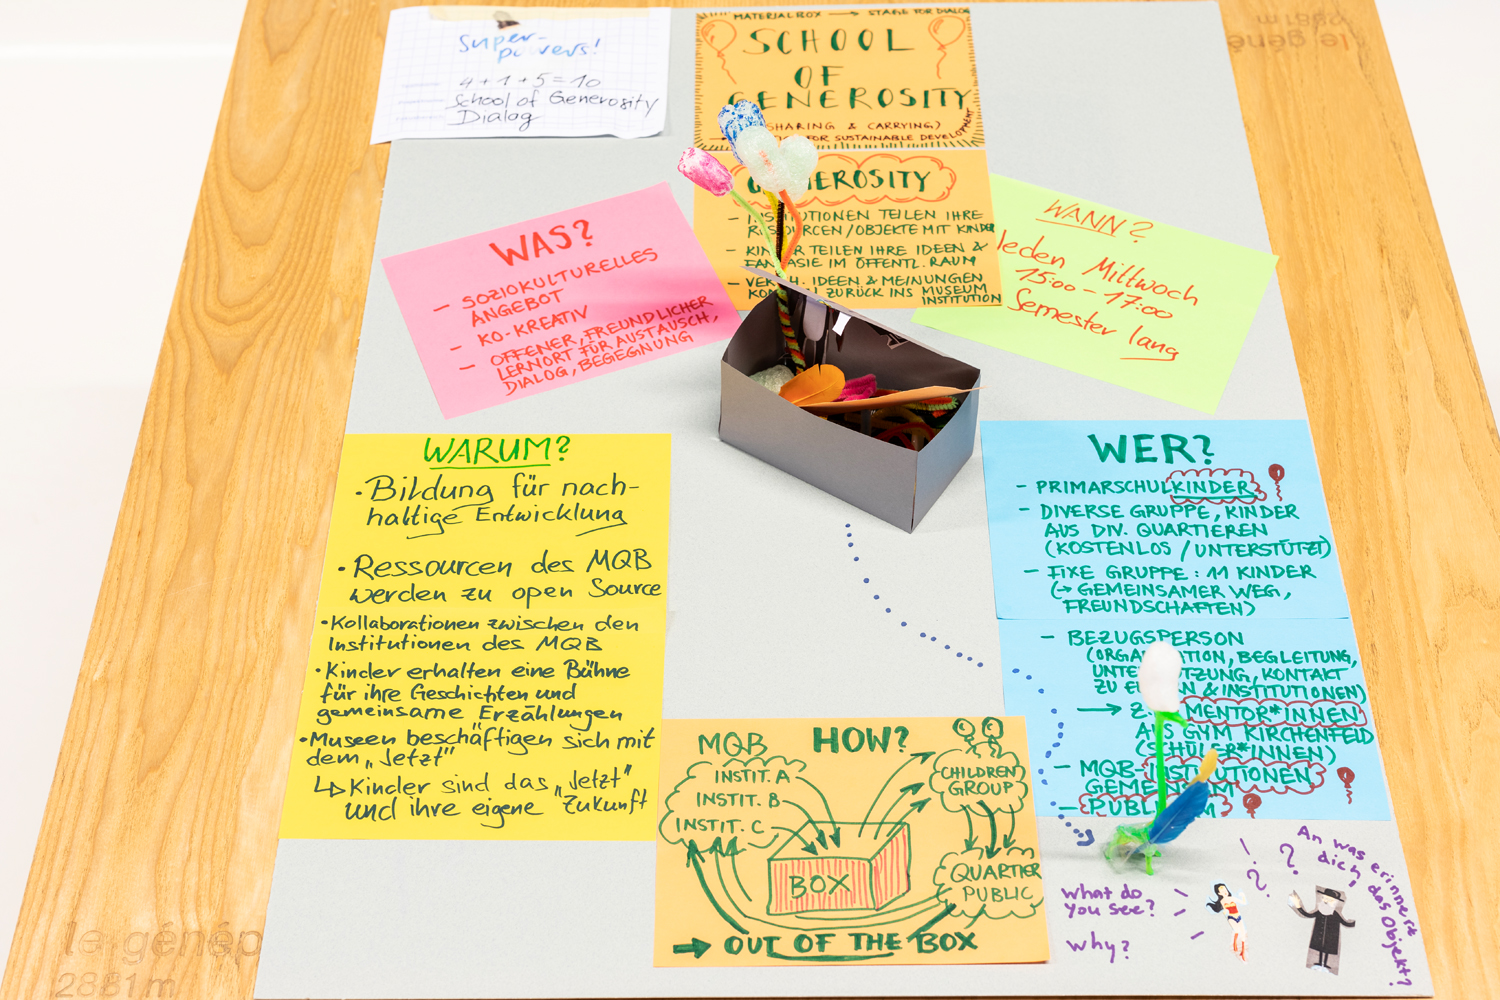 Super-
powers!
4+1+5=10
School of Generosity
Dialog
MATERIALBOX → STAGE FOR DIALOG
SCHOOL
OF
GENEROSITY
(SHARING & CARRYING)
FOR SUSTAINABLE DEVELOPMENT
le géné
2881 m
WAS?
- SOZIOKULTURELLES
ANGEBOT
- KO-KREATIV
- OFFENER, FREUNDLICHER
LERNORT FÜR AUSTAUSCH,
DIALOG, BEGEGNUNG
GENEROSITY
- INSTITUTIONEN TEILEN IHRE
RESSOURCEN/OBJEKTE MIT KINDER
- KINDER TEILEN IHRE IDEEN &
FANTASIE IM ÖFFENTL. RAUM
- IDEEN & MEINUNGEN
ZURÜCK INS MUSEUM
INSTITUTION
WANN?
Jeden Mittwoch
15:00 - 17:00
Semester lang
WARUM?
• Bildung für nach-
haltige Entwicklung
• Ressourcen des MQB
werden zu open Source
• Kollaborationen zwischen den
Institutionen des MQB
• Kinder erhalten eine Bühne
für ihre Geschichten und
gemeinsame Erzählungen
• Museen beschäftigen sich mit
dem „Jetzt"
↳ Kinder sind das „Jetzt"
und ihre eigene "Zukunft
WER?
- PRIMARSCHULKINDER
- DIVERSE GRUPPE, KINDER
AUS DIV. QUARTIEREN
(KOSTENLOS / UNTERSTÜTZT)
- FIXE GRUPPE: 11 KINDER
(→ GEMEINSAMER WEG,
FREUNDSCHAFTEN)
- BEZUGSPERSON
(ORGANISATION, BEGLEITUNG,
UNTERSTÜTZUNG, KONTAKT
ZU & INSTITUTIONEN)
→ MENTOR*INNEN
AUS GYM KIRCHENFELD
(SCHÜLER*INNEN)
- MQB-INSTITUTIONEN
GEMEINSAM
- PUBLIKUM
HOW?
MQB
INSTIT. A
INSTIT. B
INSTIT. C
BOX
CHILDREN
GROUP
QUARTIER
PUBLIC
→ OUT OF THE BOX
what do
you see?
why?
! ? ?
An was erinnert
dich das Objekt?
le génép
2881 m